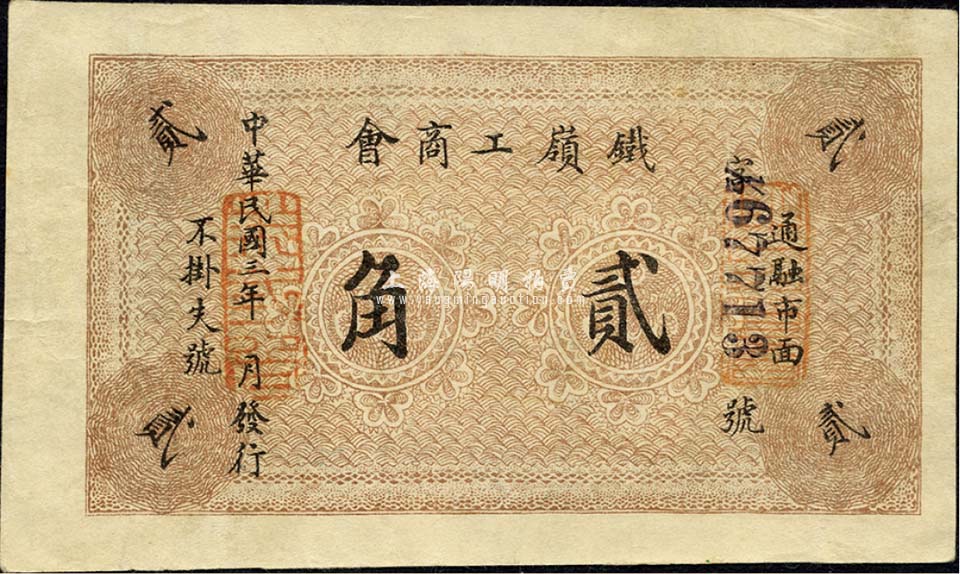 鐵嶺工商會
貳
貳
貳
貳
貳角
通融市面
字
號
中華民國三年 月發行
不掛失號
上海陽明拍賣
www.yangmingauction.com